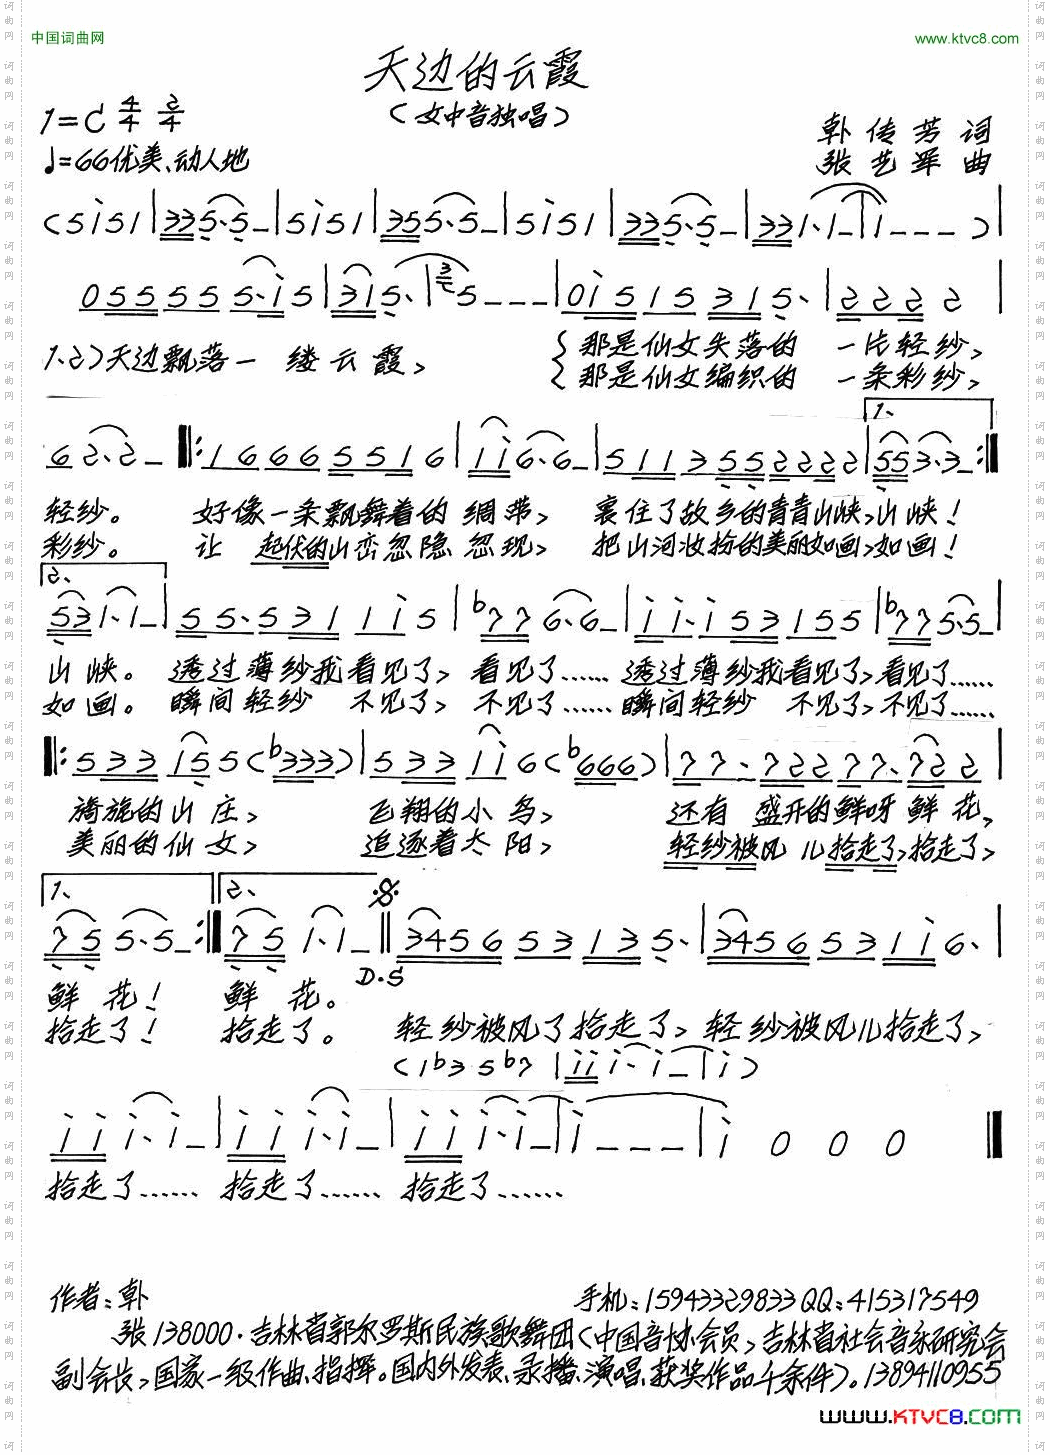 中国词曲网
www.ktvc8.com
天边的云霞
(女中音独唱)
1=C 4/4 2/4
♩=66优美、动人地
韩传芳 词
张艺军 曲
(5i51|335·5-|5i51|355·5-|5i51|335·5-|331·1-|1---)|
055555·i5|3i5·|3/2 5---|0i515315·|2222|
1.2)天边飘落一缕云霞,
那是仙女失落的 一片轻纱,
那是仙女编织的 一条彩纱,
62·2-|:16665516|ii6·6-|5113552222|1、553·3-:|
轻纱。 好像一条飘舞着的绸带, 裹住了故乡的青青山峡,山峡!
彩纱。 让 起伏的山峦忽隐忽现, 把山河妆扮的美丽如画,如画!
2、
531·1-|55·5311i5|b776·6-|ii·i53155|b775·5-|
山峡。 透过薄纱我看见了, 看见了…… 透过薄纱我看见了,看见了……
如画。 瞬间轻纱 不见了, 不见了…… 瞬间轻纱 不见了,不见了……
|:533155(b333)|533ii6(b666)|77·72277·722|
旖旎的山庄, 飞翔的小鸟, 还有 盛开的鲜呀鲜花,
美丽的仙女, 追逐着太阳, 轻纱被风儿拾走了,拾走了,
1、 2、
755·5-:|751·1-||345653135·|34565311i6·|
D.S
鲜花! 鲜花。
拾走了! 拾走了。 轻纱被风了拾走了, 轻纱被风儿拾走了,
(1b35b7|iii·i-|i)
iii·i-|iii·i-|iii·i-|i---|i000||
拾走了…… 拾走了…… 拾走了……
作者:韩 手机:15943329833 QQ:415317549
张138000·吉林省郭尔罗斯民族歌舞团(中国音协会员,吉林省社会音乐研究会
副会长,国家一级作曲、指挥。国内外发表、录播、演唱、获奖作品千余件)。13894110955
www.KTVC8.com